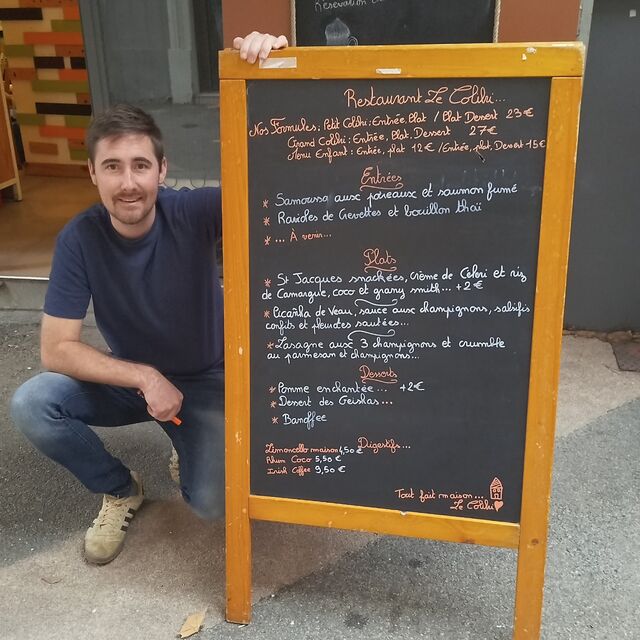 Réservation
Restaurant Le Colibri...
Nos Formules: Petit Colibri: Entrée, Plat / Plat Dessert 23€
Grand Colibri: Entrée, Plat, Dessert 27€
Menu Enfant: Entrée, plat 12€ / Entrée, plat, Dessert 15€
Entrées
* Samoussa aux poireaux et saumon fumé
* Ravioles de Crevettes et bouillon thaï
* ... À venir...
Plats
* St Jacques snackées, crème de Céleri et riz
de Camargue, coco et granny smith... +2€
* Picanha de Veau, sauce aux champignons, salsifis
confits et pleurotes sautées...
* Lasagne aux 3 champignons et crumble
au parmesan et champignons...
Desserts
* Pomme enchantée... +2€
* Dessert des Geishas...
* Banoffee
Digestifs...
Limoncello maison 4,50€
Rhum Coco 5,50€
Irish Coffee 9,50€
Tout fait maison...
Le Colibri